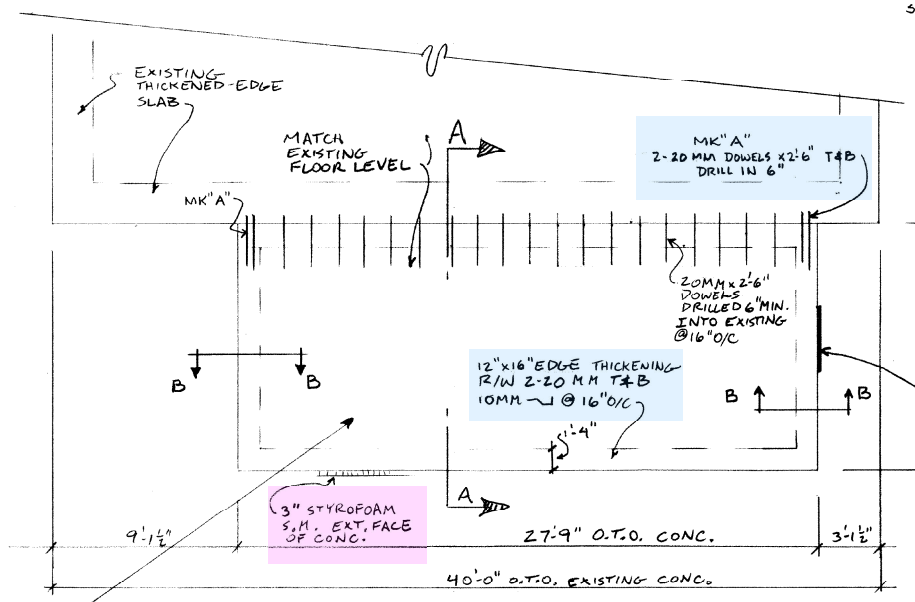 S
EXISTING
THICKENED-EDGE
SLAB
MATCH
EXISTING
FLOOR LEVEL
A
MK"A"
2-20 MM DOWELS x2'-6" T&B
DRILL IN 6"
MK"A"
20MM x 2'-6"
DOWELS
DRILLED 6" MIN.
INTO EXISTING
@ 16" O/C
12"x16" EDGE THICKENING
R/W 2-20 MM T&B
10MM @ 16" O/C
B
B
B
B
1'-4"
3" STYROFOAM
S.M. EXT. FACE
OF CONC.
A
9'-1½"
27'-9" O.T.O. CONC.
3'-1½"
40'-0" O.T.O. EXISTING CONC.